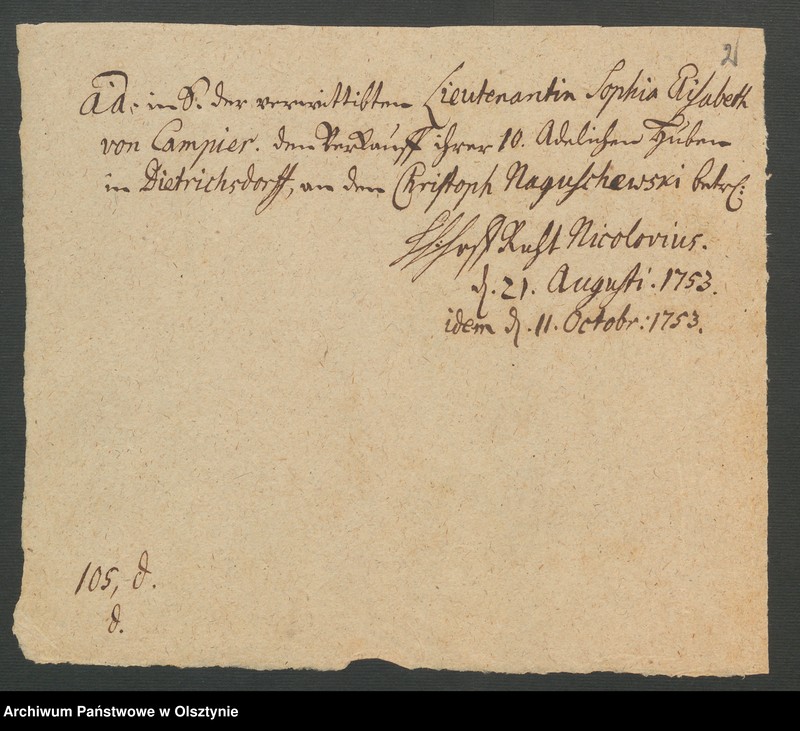 2
in S. der verwittibten Lieutenantin Sophia Elisabeth
von Campier. den Verkauff ihrer 10. Adelichen Huben
in Dietrichsdorff, an den Christoph Naguschewski betr:
Nicolovius.
d. 21. Augusti. 1753.
idem d. 11. Octobr: 1753.
105, d.
d.
Archiwum Państwowe w Olsztynie